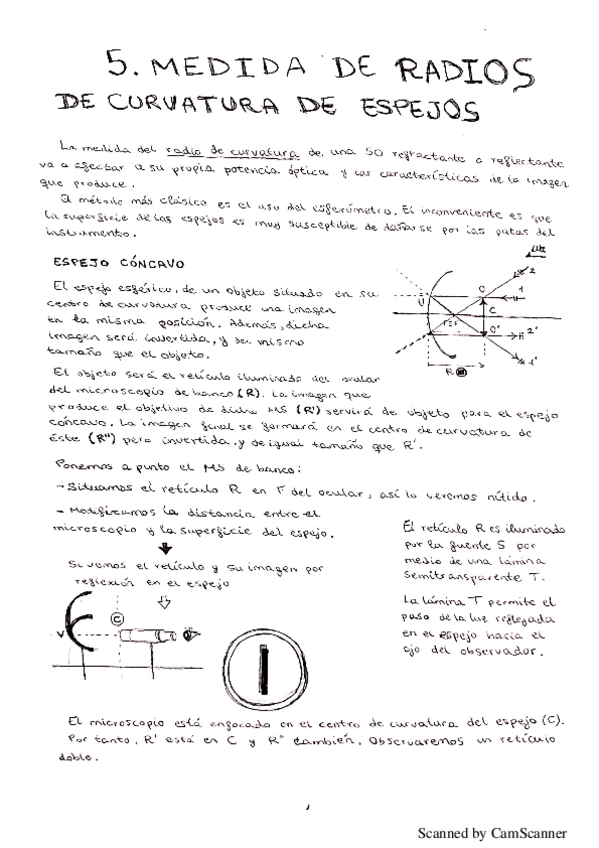 5. MEDIDA DE RADIOS
DE CURVATURA DE ESPEJOS
La medida del radio de curvatura de una SO refractante o reflectante
va a afectar a su propia potencia óptica y las características de la imagen
que produce.
El método más clásico es el uso del esferómetro. El inconveniente es que
la superficie de los espejos es muy susceptible de dañarse por las patas del
instrumento.
ESPEJO CÓNCAVO
El espejo esférico, de un objeto situado en su
centro de curvatura produce una imagen
en la misma posición. Además, dicha
imagen será invertida, y del mismo
tamaño que el objeto.
luz
2
O
1
V
C
F≡F'
O'
2'
1'
R
El objeto será el retículo iluminado del ocular
del microscopio de banco (R). La imagen que
produce el objetivo de dicho MS (R') servirá de objeto para el espejo
cóncavo. La imagen final se formará en el centro de curvatura de
éste (R'') pero invertida y de igual tamaño que R'.
Ponemos a punto el MS de banco:
- Situamos el retículo R en F del ocular, así lo veremos nítido.
- Modificamos la distancia entre el
microscopio y la superficie del espejo.
Si vemos el retículo y su imagen por
reflexión en el espejo
El retículo R es iluminado
por la fuente S por
medio de una lámina
semitransparente T.
La lámina T permite el
paso de la luz reflejada
en el espejo hacia el
ojo del observador.
V
C
El microscopio está enfocado en el centro de curvatura del espejo (C).
Por tanto, R' está en C y R'' también. Observaremos un retículo
doble.
Scanned by CamScanner